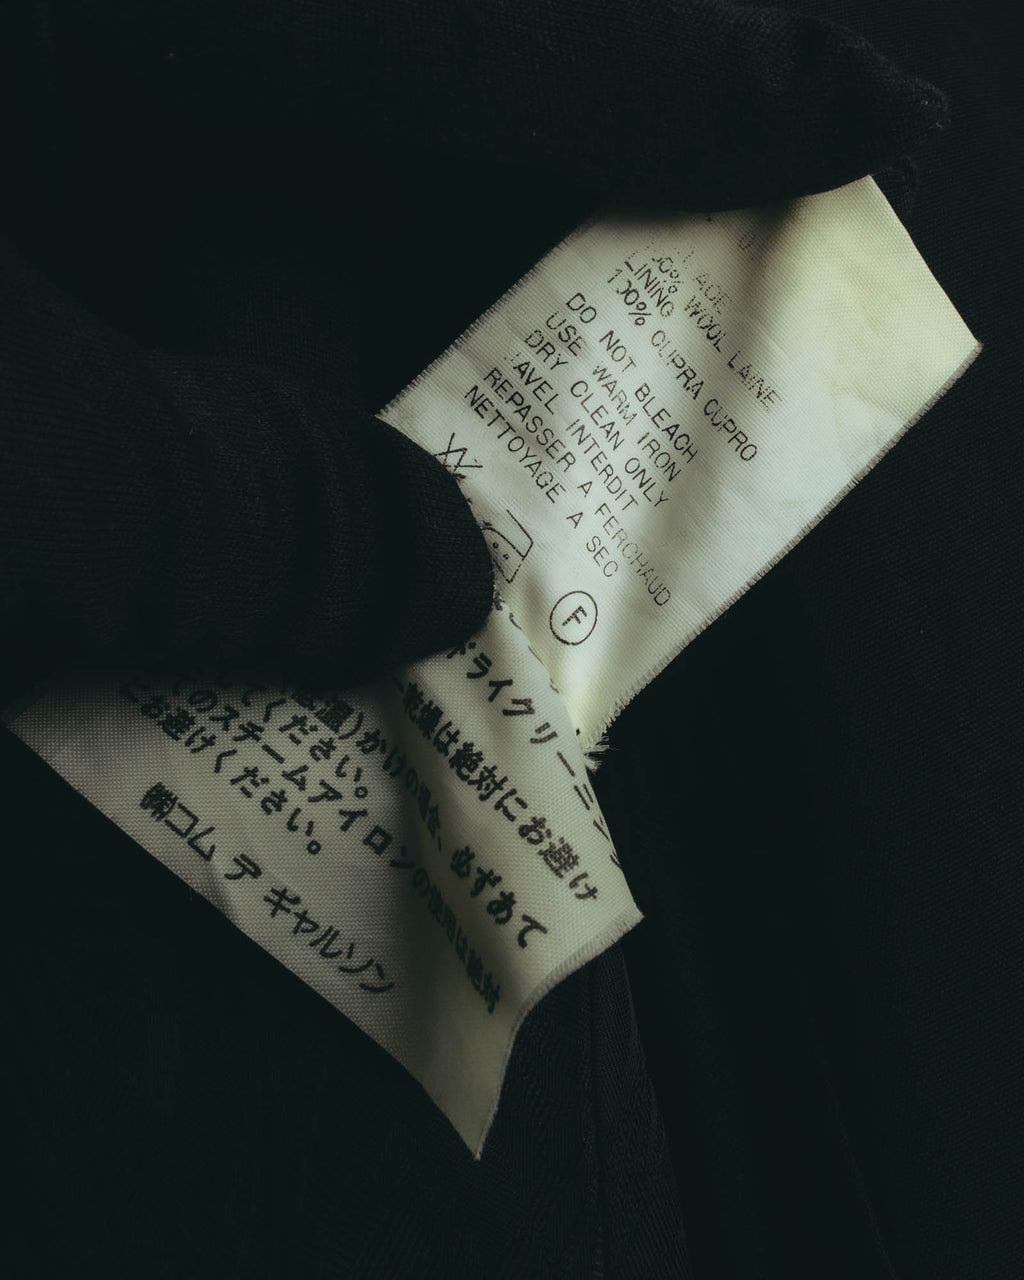 100% WOOL LAINE
LINING
100% CUPRA CUPRO
DO NOT BLEACH
USE WARM IRON
DRY CLEAN ONLY
JAVEL INTERDIT
REPASSER A FERCHAUD
NETTOYAGE A SEC
F
ドライクリーニン
乾燥は絶対にお避け
温)かけの場合、必ずあて
てください。
てのスチームアイロンの使用は絶対
にお避けください。
㈱コム デ ギャルソン